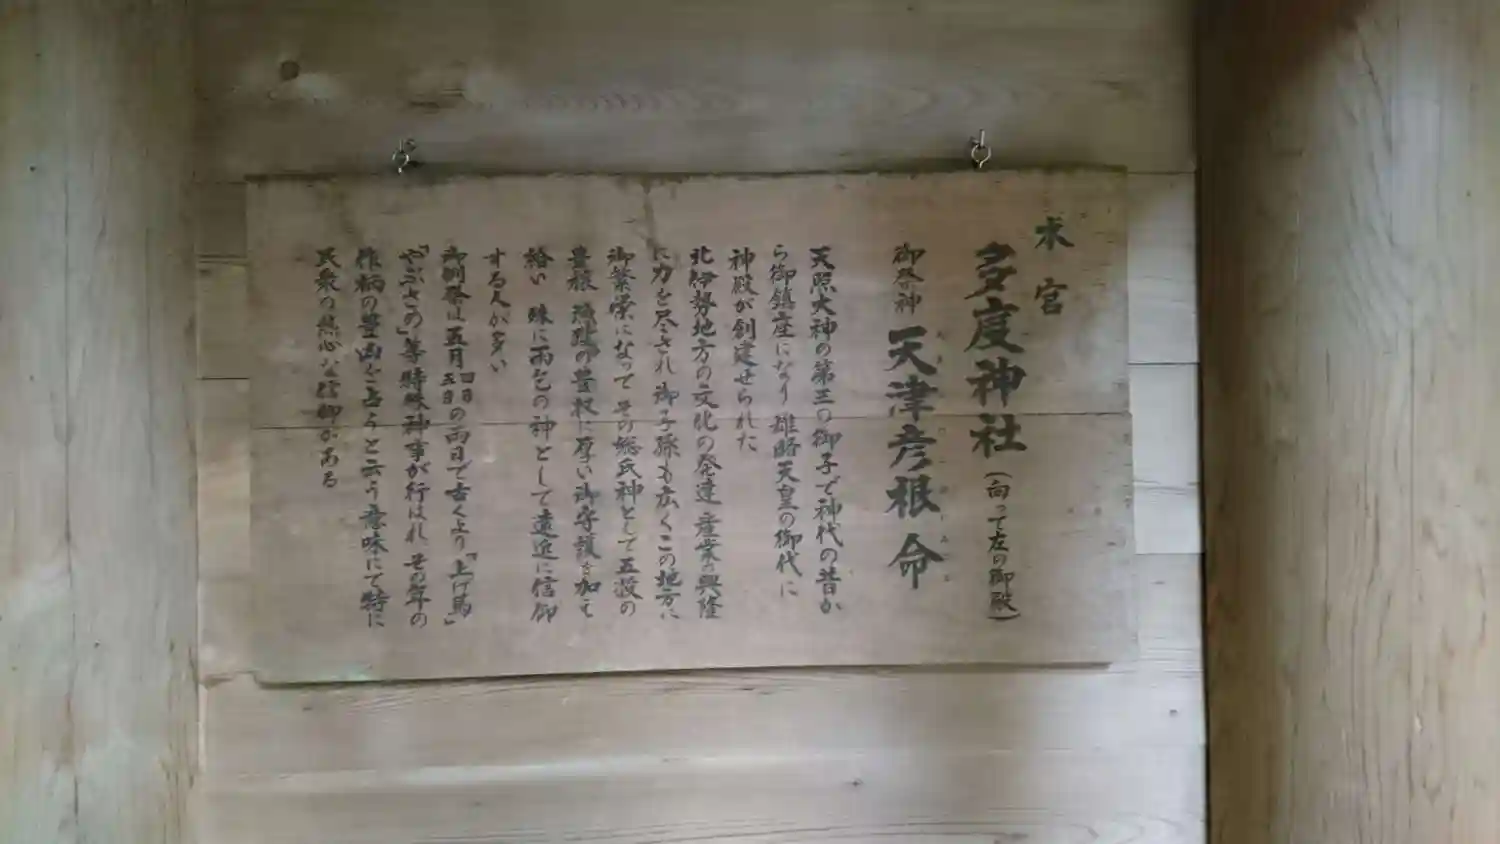 本宮
多度神社（向って左の御殿）
御祭神 天津彦根命
天照大神の第三の御子で神代の昔か
ら御鎮座になり 雄略天皇の御代に
神殿が創建せられた
北伊勢地方の文化の発達 産業の興隆
に力を尽され 御子孫も広くこの地方に
御繁栄になって その総氏神として 五穀の
豊穣 の豊収に厚い御守護を加え
給い 殊に雨乞の神として遠近に信仰
する人が多い
御例祭は五月四日五日の両日で古くより「上げ馬」
「やぶさめ」等特殊神事が行はれ その年の
作柄の豊凶を占うと云う意味にて特に
民衆の熱心な信仰がある